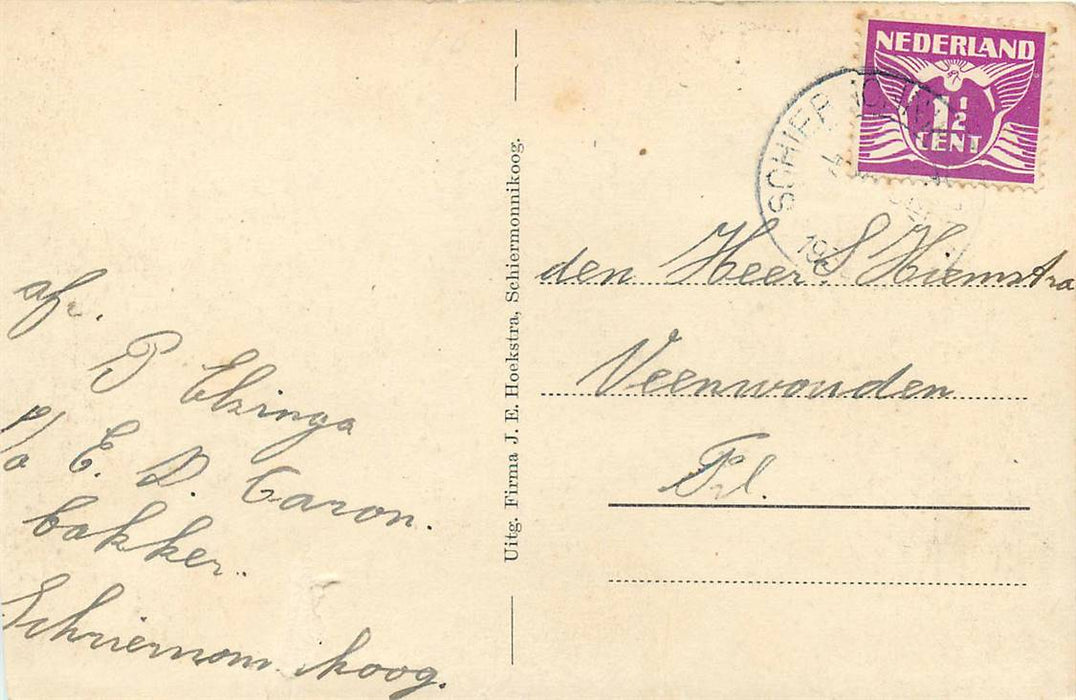 af.
P Elzinga
p/a E. D. Caron.
bakker.
Schiermonnikoog.
Uitg. Firma J. E. Hoekstra, Schiermonnikoog.
NEDERLAND
1½
CENT
SCHIER
den Heer. S Hiemstra
Veenwouden
Frl.